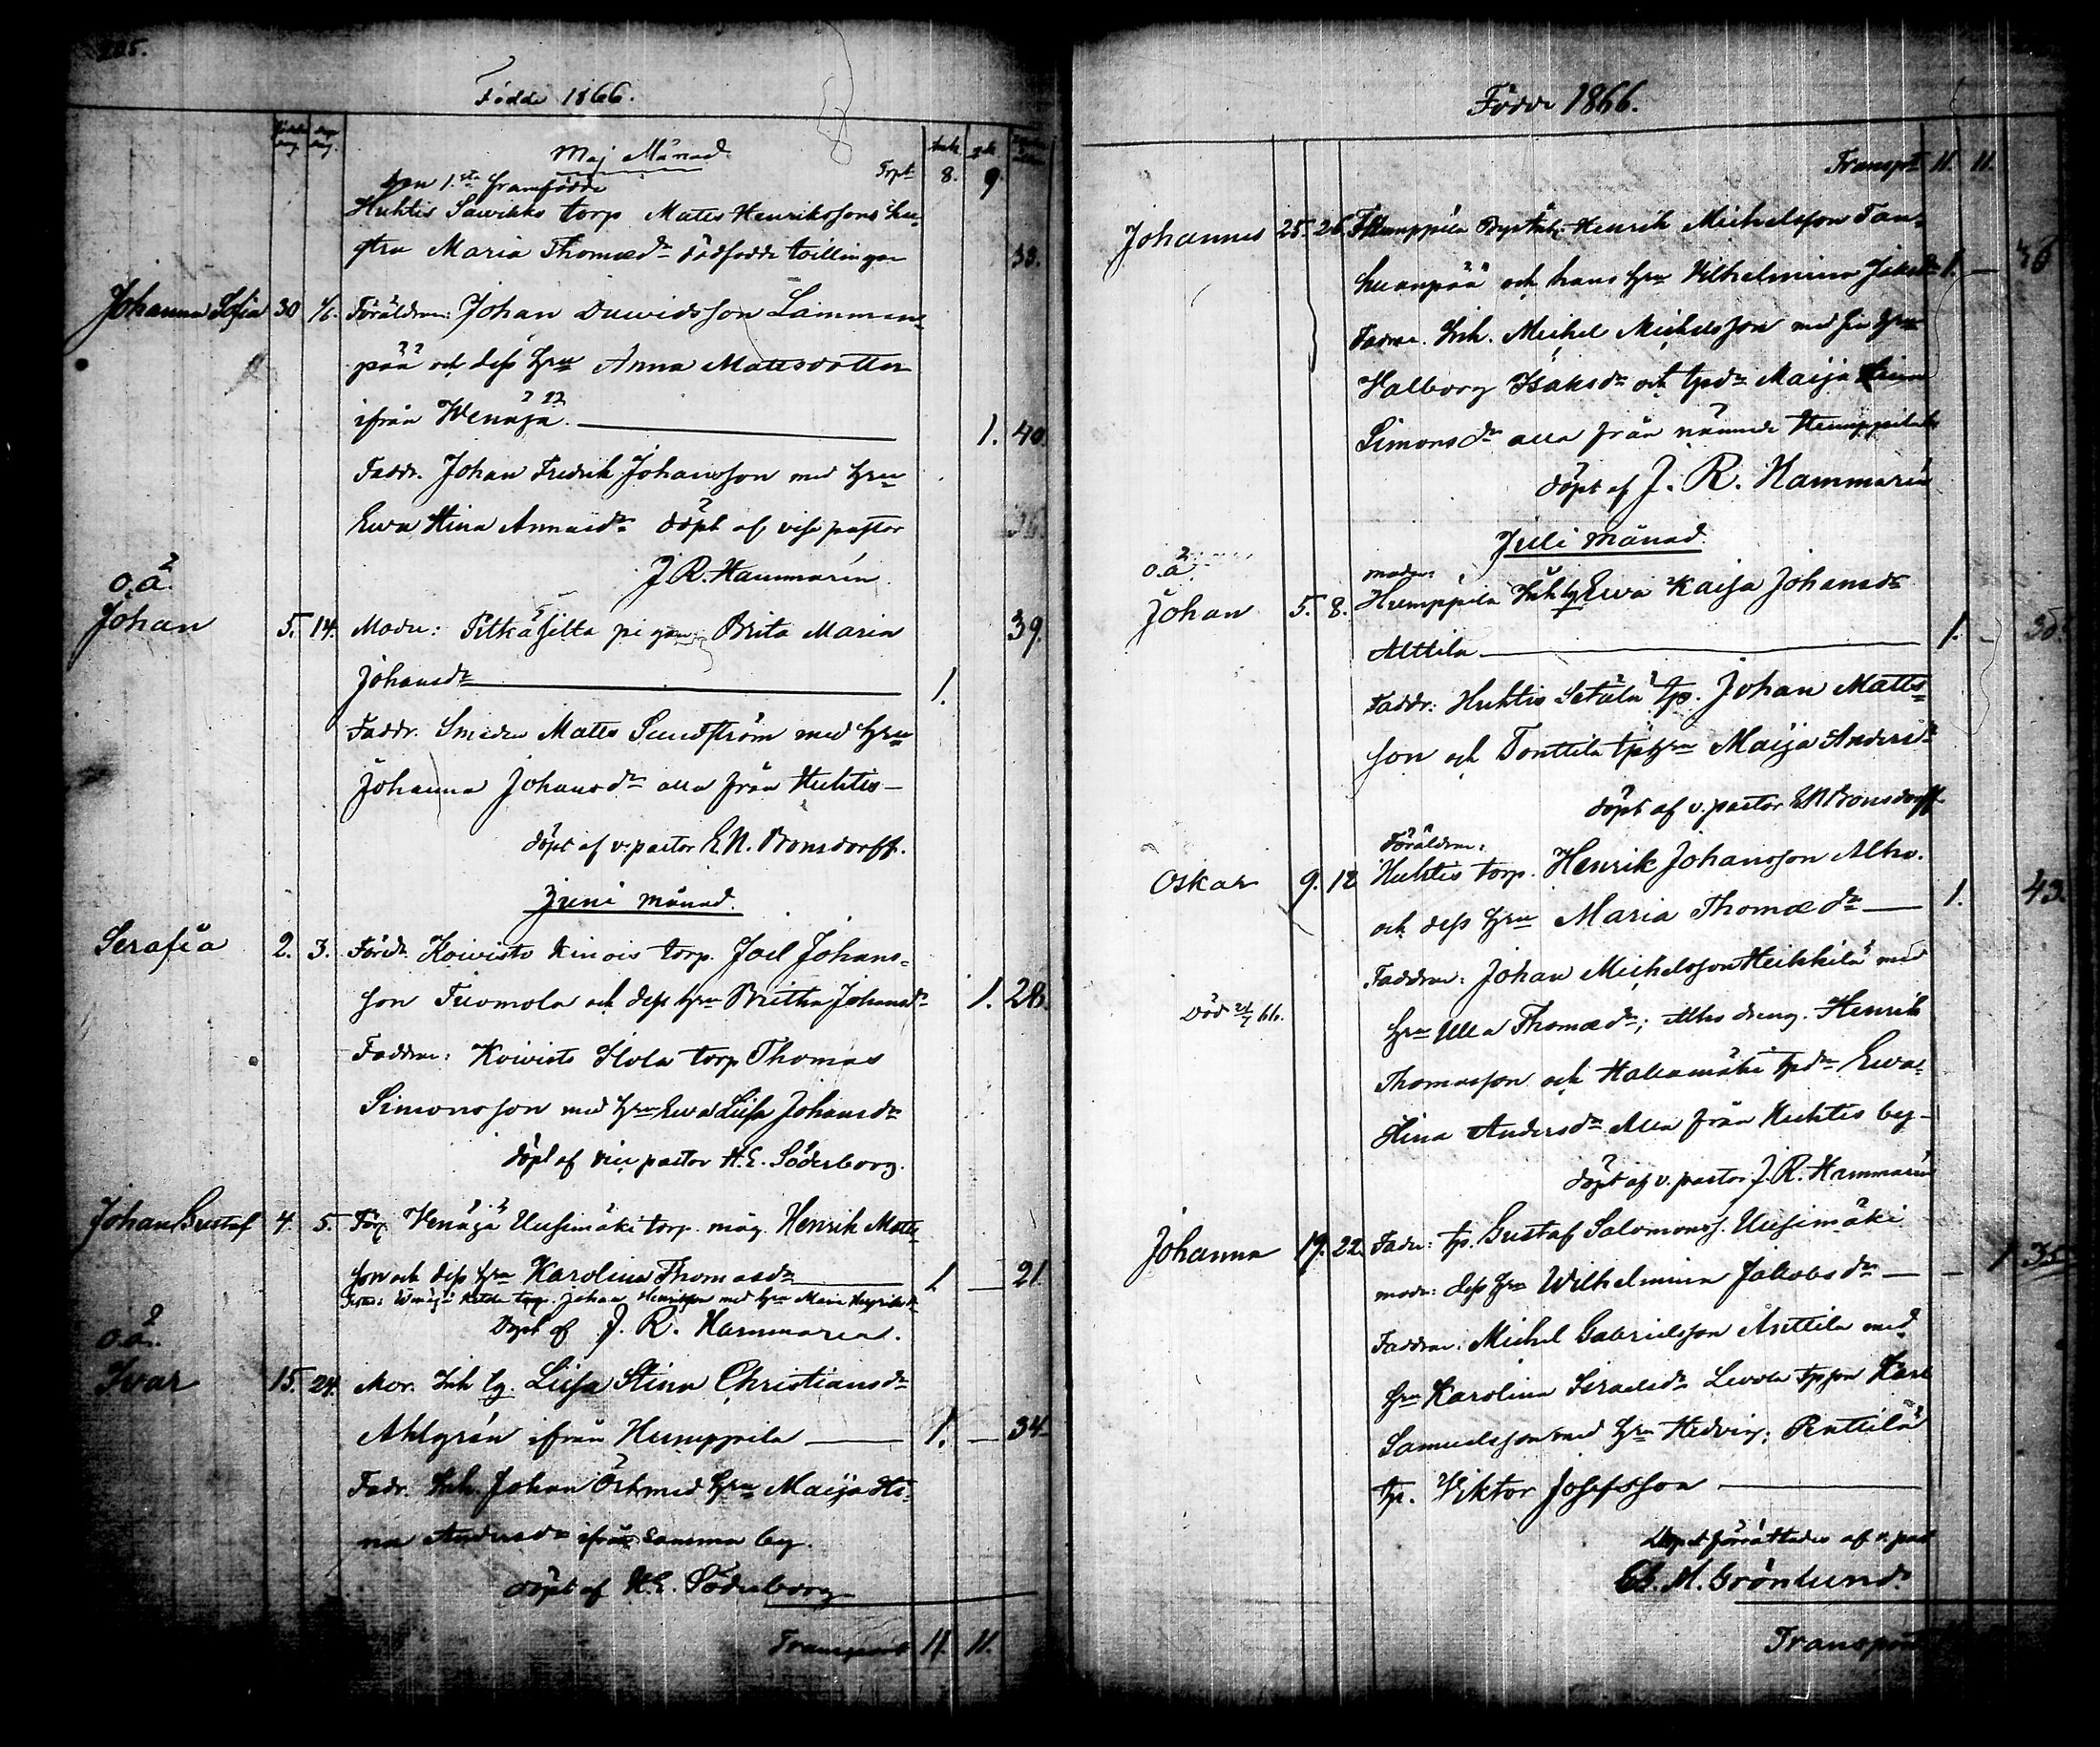 Födde 1866.
Maj Månad
Trpt 8. 9.
den 1.sta framfödde
Huhtis Sawikko torp Matts Henrikssons hu-
stru Maria Thomædr dödfödde tvillingar 33.
Johanna Sofia 30 1/6. Föräldrar: Johan Dawidsson Lammin-
pää och dess hru Anna Mattsdotter
ifrån Wenäjä. 1. 40.
Faddr. Johan Fredrik Johansson med hru
Ewa Stina Annaidr döpt af vice pastor
J. R. Hammarén.
o.ä.
Johan 5. 14. Modr: Pitkäsilta pigan Brita Maria 39.
Johansdr 1.
Faddr. Smeden Matts Sundström med hru
Johanna Johansdr alla från Huhtis
döpt af v. pastor E.N. Bonsdorff.
Juni månad.
Serafia 2. 3. Föräldr Koivisto Kinois torp. Joel Johans-
son Tuomola och dess hru Britha Johansdr 1. 28.
Faddrar: Koivisto Hola torp Thomas
Simonsson med hru Ewa Liisa Johansdr
döpt af vice pastor H.E. Söderborg.
Johan Gustaf 4. 5. För. Wenäjä Uusimäki torp. måg. Henrik Matts-
son och dess hru Karolina Thomasdr 1 — 21.
torp. Johan Henriksson med hru Maria Henriksdr
Döpt af J. R. Hammaren.
o.ä.
Ivar 15. 24. Mor. Inh tg. Liisa Stina Christiansdr
Ahlgrén ifrån Humppila 1. — 34
Fadr. Inh. Johan Öst med hru Maija Sti-
na Andersdr ifrån samma by.
döpt af H.E. Söderborg
Transport 11. 11.
Födde 1866.
Transpt 11. 11.
Johannes 25. 26. Humppila Henrik Michelsson Tan-
huanpää och hans hru Wilhelmina 1. —
Faddrar. Inh. Michel Michelsson med sin hru
Walborg Isaksdr och tpdr Maija
Simonsdr alla från nämnde Humppila
döpt af J. R. Hammarén
Juli månad.
o.ä. moder:
Johan 5. 8. Humppila Inh tg Ewa Kaisa Johansdr
Attila 1. -
Faddr: Huhtis Setälä tp. Johan Matts-
son och Tonttila tphru Maija Andersdr
döpt af v. pastor E N Bonsdorff
Föräldrar:
Oskar 9. 12 Huhtis torp. Henrik Johansson Alho.
och dess hru Maria Thomædr 1. 43.
Faddrar: Johan Michelsson Heikkilä med
Död 24/7 66. hru Ulla Thomædr; Alho dreng. Henrik
Thomasson och Hallamäki tpdr Ewa
Stina Andersdr Alla från Huhtis by
döpt af v. pastor J. R. Hammarén
Johanna 19. 22. Fadr: tp. Gustaf Salomonss. Uusimäki
modr: dess hru Wilhelmina Jakobsdr — - 1 35
Faddrar: Michel Gabrielsson Anttila med
hru Karolina Israelsdr Levola tpson Karl
Samuelsson med hru Hedvig; Penttilä
tp. Wiktor Josefsson
Dopet förrättades af v. past
M. Grönlund.
Transport